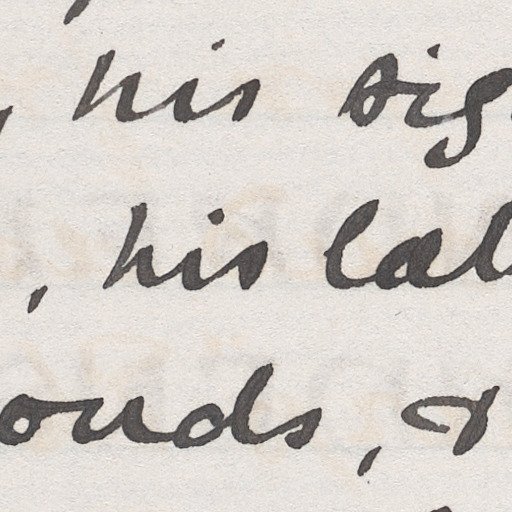 , his sig
, his lal
ouds, &